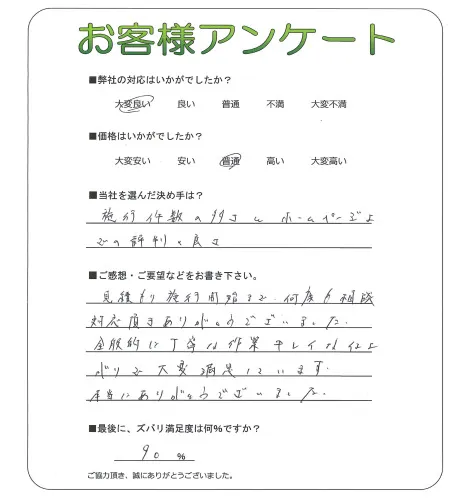 お客様アンケート
■弊社の対応はいかがでしたか？
大変良い 良い 普通 不満 大変不満
■価格はいかがでしたか？
大変安い 安い 普通 高い 大変高い
■当社を選んだ決め手は？
施行件数の多さとホームページよ
での評判の良さ
■ご感想・ご要望などをお書き下さい。
見積もり施行開始まで、何度も相談
対応頂きありがとうございました。
全般的に丁寧な作業 キレイな仕上
がりで大変満足しています。
本当にありがとうございました。
■最後に、ズバリ満足度は何%ですか？
90 %
ご協力頂き、誠にありがとうございました。